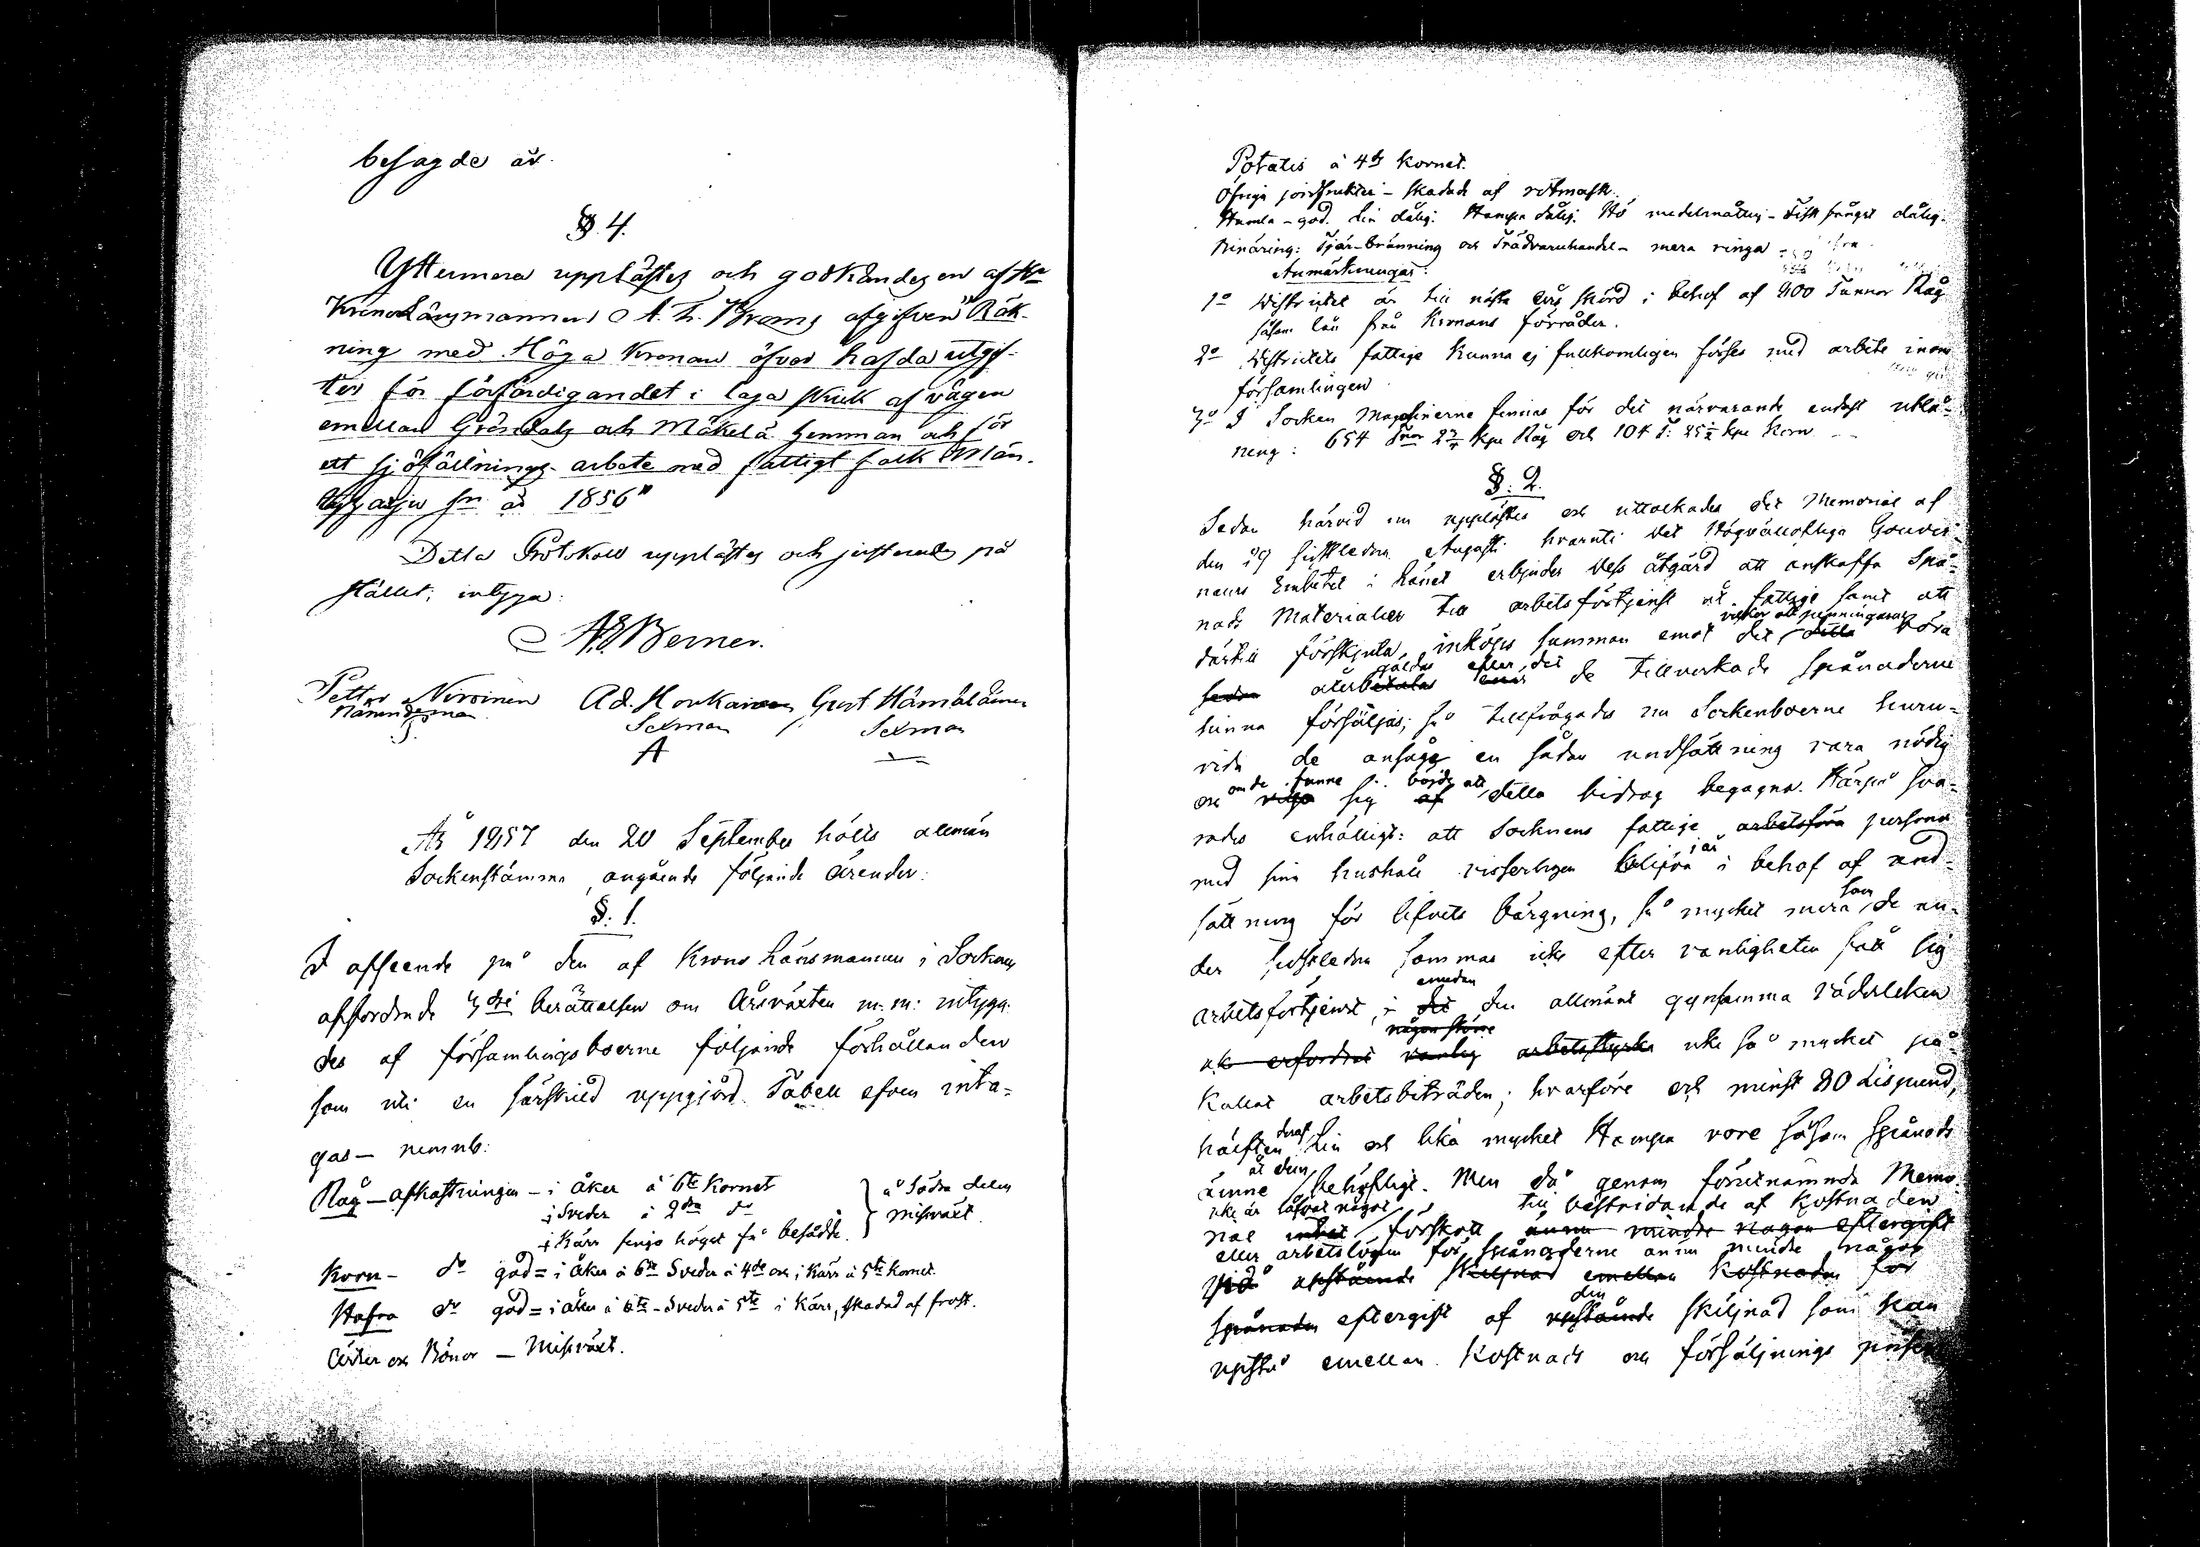 besagde år.
§. 4.
Yttermera upplästes och godkändes en af Hr
Kronolänsmannen A. L. Broms afgifven "Räk-
ning med Höga Kronan öfver hafda utgif-
ter för förfärdigandet i laga skick af vägen
emellan Gröndals och Mäkelä hemman och för
ett sjöfällnings-arbete med fattigt folk
år 1856"
Detta Protokoll upplästes och justerades på
stället; intyga:
A. Berner.
Petter Nironen Ad. Honkanen Gust. Hämäläinen
Nämndeman Sexman Sexman
A
År 1857 den 20 September hölls allmän
Sockenstämma, angående följande ärender:
§. 1.
I afseende på den af Krono Länsmannen i Socknen
affordrade 3dje berättelsen om Årsväxten m.m: intyga-
des af församlingsboerne följande förhållanden
som uti en särskild uppgjord Tabell efven inta-
gas — nemnl:
Råg — afkastningen — i åker à 6te Kornet
i Sveder à 2dra do
i Kärr högst få besådde.
å Södra delen
missväxt.
Korn — do god = i åker à 6te Sveder à 4de och i Kärr à 5te Kornet.
Hafra do god = i åker à 6te — Sveder à 5te i Kärr, skadad af frost.
Ärter och Bönor — Missväxt.
Potatis à 4de Kornet.
Öfriga jordfrukter — skadade af rotmask.
Humla — god. Lin dålig. Hampa dålig. Hö medelmåttig — Fiskfånget dålig.
Binäring: Tjär-bränning och Trädvaruhandel — mera ringa
Anmärkningar:
1o Distriktet är till nästa års skörd i behof af 400 Tunnor Råg
såsom lån från Kronans förråder.
2o Distriktets fattige kunna ej fullkomligen förses med arbete inom
församlingen
3o I Socken Magasinerne finnas för det närvarande endast utlå-
ning: 654 Tnor Kpr Råg och 104 T: Kpr Korn
§. 2.
Sedan härvid nu upplästes och uttolkades det Memorial af
den 29 sistledne Augusti hvaruti det Högvällofliga Gouver-
neurs Embetet i Länet erbjuder dess åtgärd att anskaffa Spå-
nads Materialier till arbetsförtjenst åt fattige samt att
vilkor att penningarne
dertill förskjuta inköps summan emot det detta böra
gäldas efter det
sedan återbetalas de tillverkade spånaderne
hinna försäljas; så tillfrågades nu Sockenboerne huru-
vida de ansågo en sådan undsättning vara nödig
om de funne böjde att
och vilja sig af detta bidrag begagna. Härpå sva-
rades enhälligt: att Socknens fattige arbetsföra personer
i år
med sina hushåll visserligen blifva i behof af und-
som
sättning för lifvets bärgning, så mycket mera de un-
der sistledne sommar icke efter vanligheten fått sig
emedan
arbetsförtjenst, i det den allmänt gynsamma väderleken
någon större
ock erfordrat vanlig arbetsstyrka icke så mycket på-
kallat arbetsbiträden; hvarföre och minst 80 Lispund,
deraf
hälften Lin och lika mycket Hampa vore såsom Spånads
åt dem
ämne behöfligt. Men då genom förutnämnda Memo-
icke är låfvat något till bestridande af kostnaden
rial intet förskott ännu mindre någon eftergift
eller arbetslönen för spånaderne ännu mindre någon
vid uppstående skilnad emellan kostnaden för
den
spånaden eftergift af uppstående skiljnad som kan
uppstå emellan kostnads och försäljnings priset